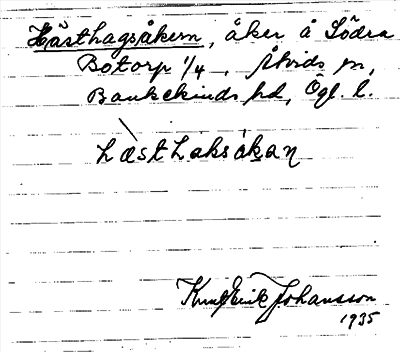 Hästhagsåkern, åker å Södra
Botorp 1/4, Åtvids sn,
Bankekinds hd, Ögl. l.
hæsthaksåkan
Knut Erik Johansson
1935